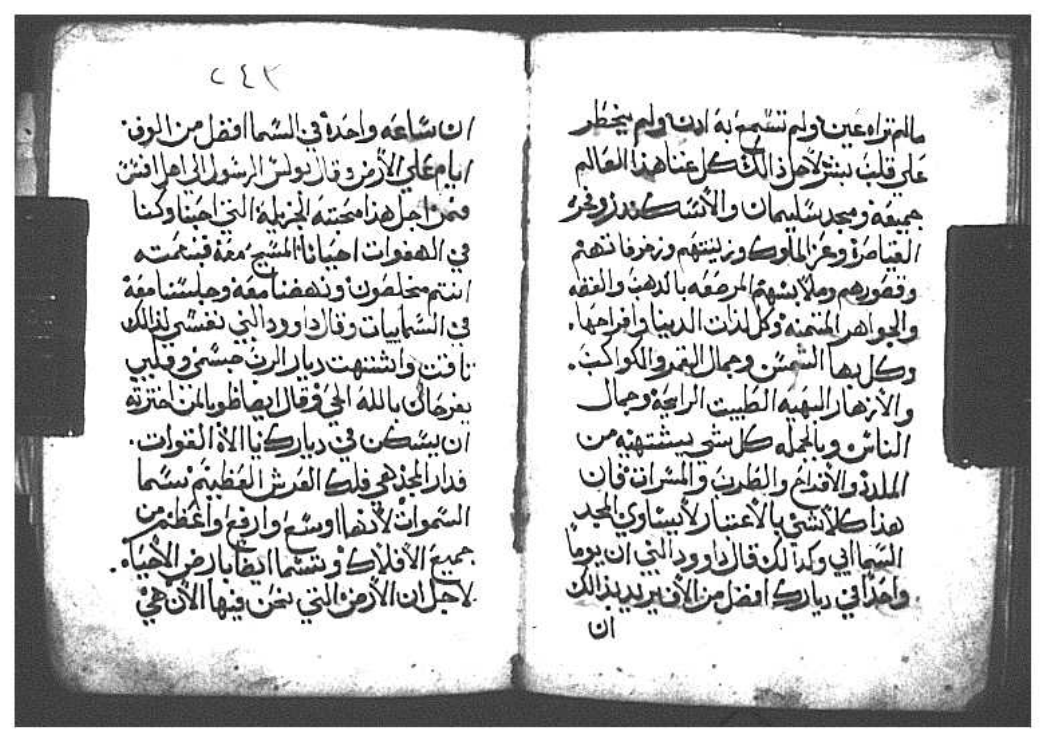 مالم تراه عين ولم تسمع به ادن ولم يخطر
على قلب بشر لاجل ذالك كل غنا هذا العالم
جميعه ومجد سليمان والأسكندر وفخر
القياصرة وعز الملوك وزينتهم وزخرفاتهم
وقصورهم وملابسهم المرصعه بالدهب والفضه
والجواهر المتمنه وكل لذات الدينا وافراحها.
وكل بها الشمس وجمال القمر والكواكب.
والأزهار البهيه الطيبت الرايحة وجمال
الناس وبالجمله كل شي يستهيه من
الملذذ والأفراح والطرب والمسرات فان
هذا كلا شي بالأعتبار لأيساوي المجد
السماابي وكدالك قال داوود النبي ان يوماً
واحداً في ديارك افضل من الأف يريد بذالك
ان
٢٤٣
ان ساعه واحدة في السما افضل من الوف
ايام على الأرض وقال بولس الرسول الى اهل افسس
فمن اجل هذا محبته الجزيلة التي احبنا وكنا
في الهفوات احيانا المسيح معه فبنعمته
انتم مخلصون ونهضنا معه وجلسنا معه
في السمايبات وقال داوود النبي نفسي لذالك
تاقت واشتهت ديار الرب جسمي وقلبي
يفرحان بالله الحي وقال ايضا طوبا لمن اخترته
ان يسكن في ديارك يا الاه القوات.
فدار المجد هي فلك العرش العظيم تسما
السموات لأنها اوسع وارفع واعظم من
جميع الأفلاك وتسما ايضا بارض الأحياء.
لاجل ان الأرض التي نحن فيها الأن هي